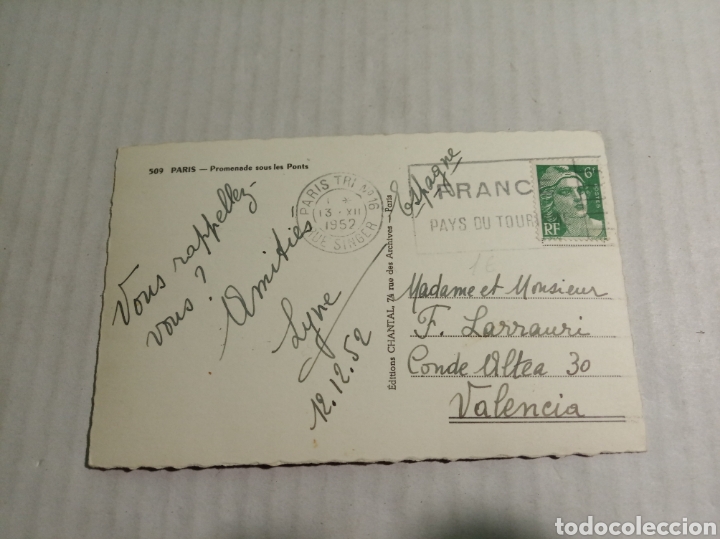 509 PARIS — Promenade sous les Ponts
Vous rappellez-
vous ?
Amitiés
Lyne
12.12.52
PARIS TRI Nº 16
13 - XII
1952
RUE SINGER
Espagne
FRANC
PAYS DU TOUR
6F
RF
Editions CHANTAL, 74 rue des Archives — Paris
Madame et Monsieur
F. Larrauri
Conde Altea 30
Valencia
todocoleccion